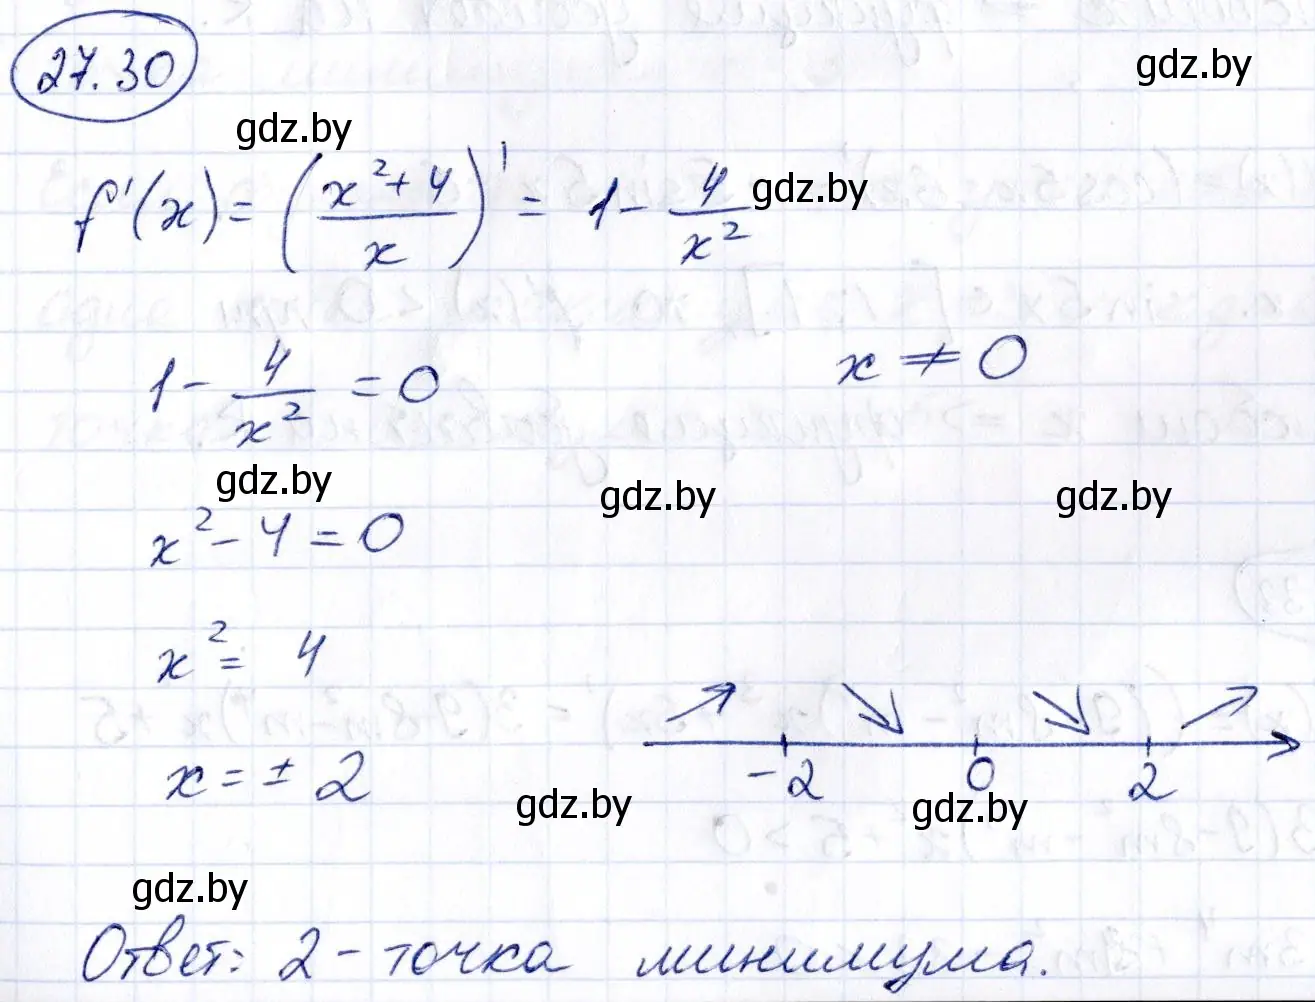 27.30
gdz.by
gdz.by
f'(x) = ((x² + 4)/x)' = 1 - 4/x²
gdz.by
1 - 4/x² = 0
x ≠ 0
gdz.by
gdz.by
gdz.by
x² - 4 = 0
x² = 4
x = ± 2
-2 0 2
gdz.by
gdz.by
gdz.by
Ответ: 2 - точка минимума.